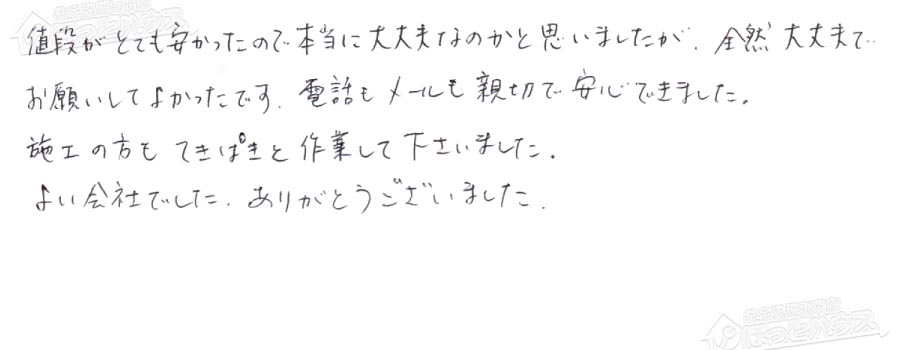 値段がとても安かったので本当に大丈夫なのかと思いましたが、全然大丈夫で
お願いしてよかったです。電話もメールも親切で安心できました。
施工の方もてきぱきと作業して下さいました。
よい会社でした。ありがとうございました。
ほっとハウス